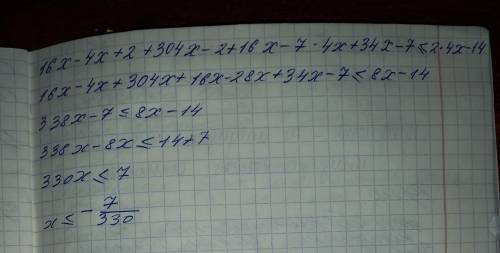 16x-4x+2+304x-2+16x-7·4x+34x-7≤2·4x-14
16x-4x+304x+16x-28x+34x-7≤8x-14
338x-7≤8x-14
338x-8x≤14+7
330x≤7
x≤-7/330